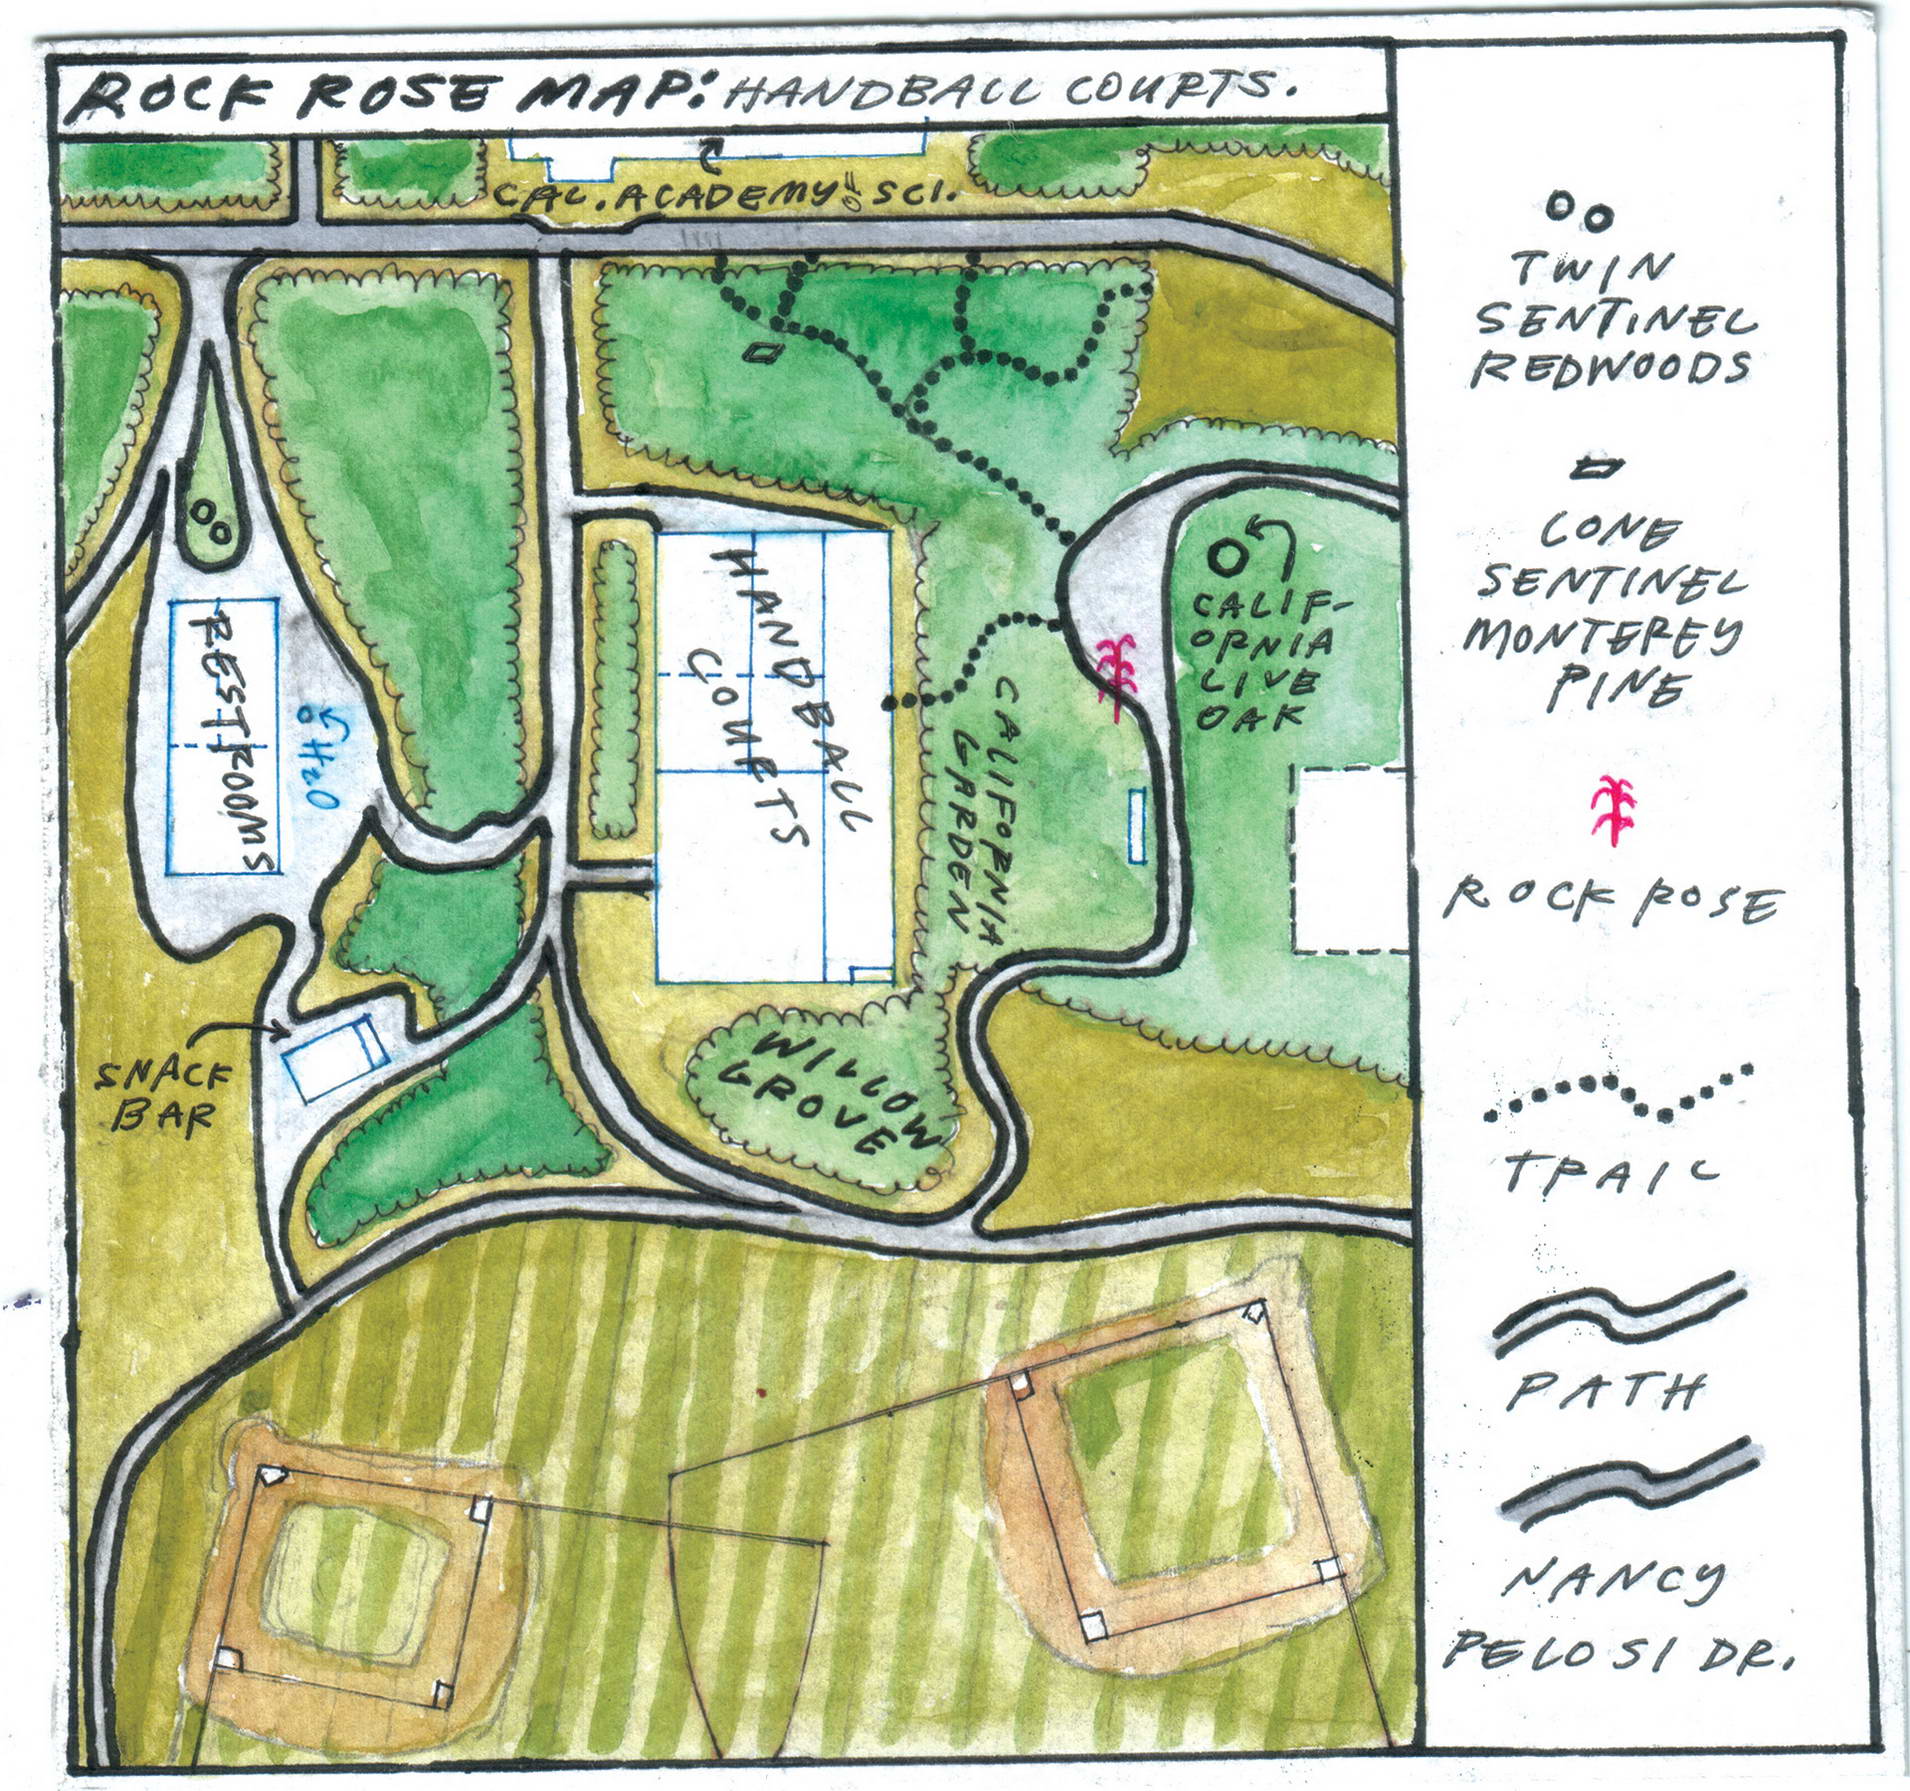 ROCK ROSE MAP: HANDBALL COURTS.
CAL. ACADEMY OF SCI.
HANDBALL
COURTS
RESTROOMS
H2O
CALIF-
ORNIA
LIVE
OAK
CALIFORNIA
GARDEN
SNACK
BAR
WILLOW
GROVE
TWIN
SENTINEL
REDWOODS
LONE
SENTINEL
MONTEREY
PINE
ROCK ROSE
TRAIL
PATH
NANCY
PELOSI DR.